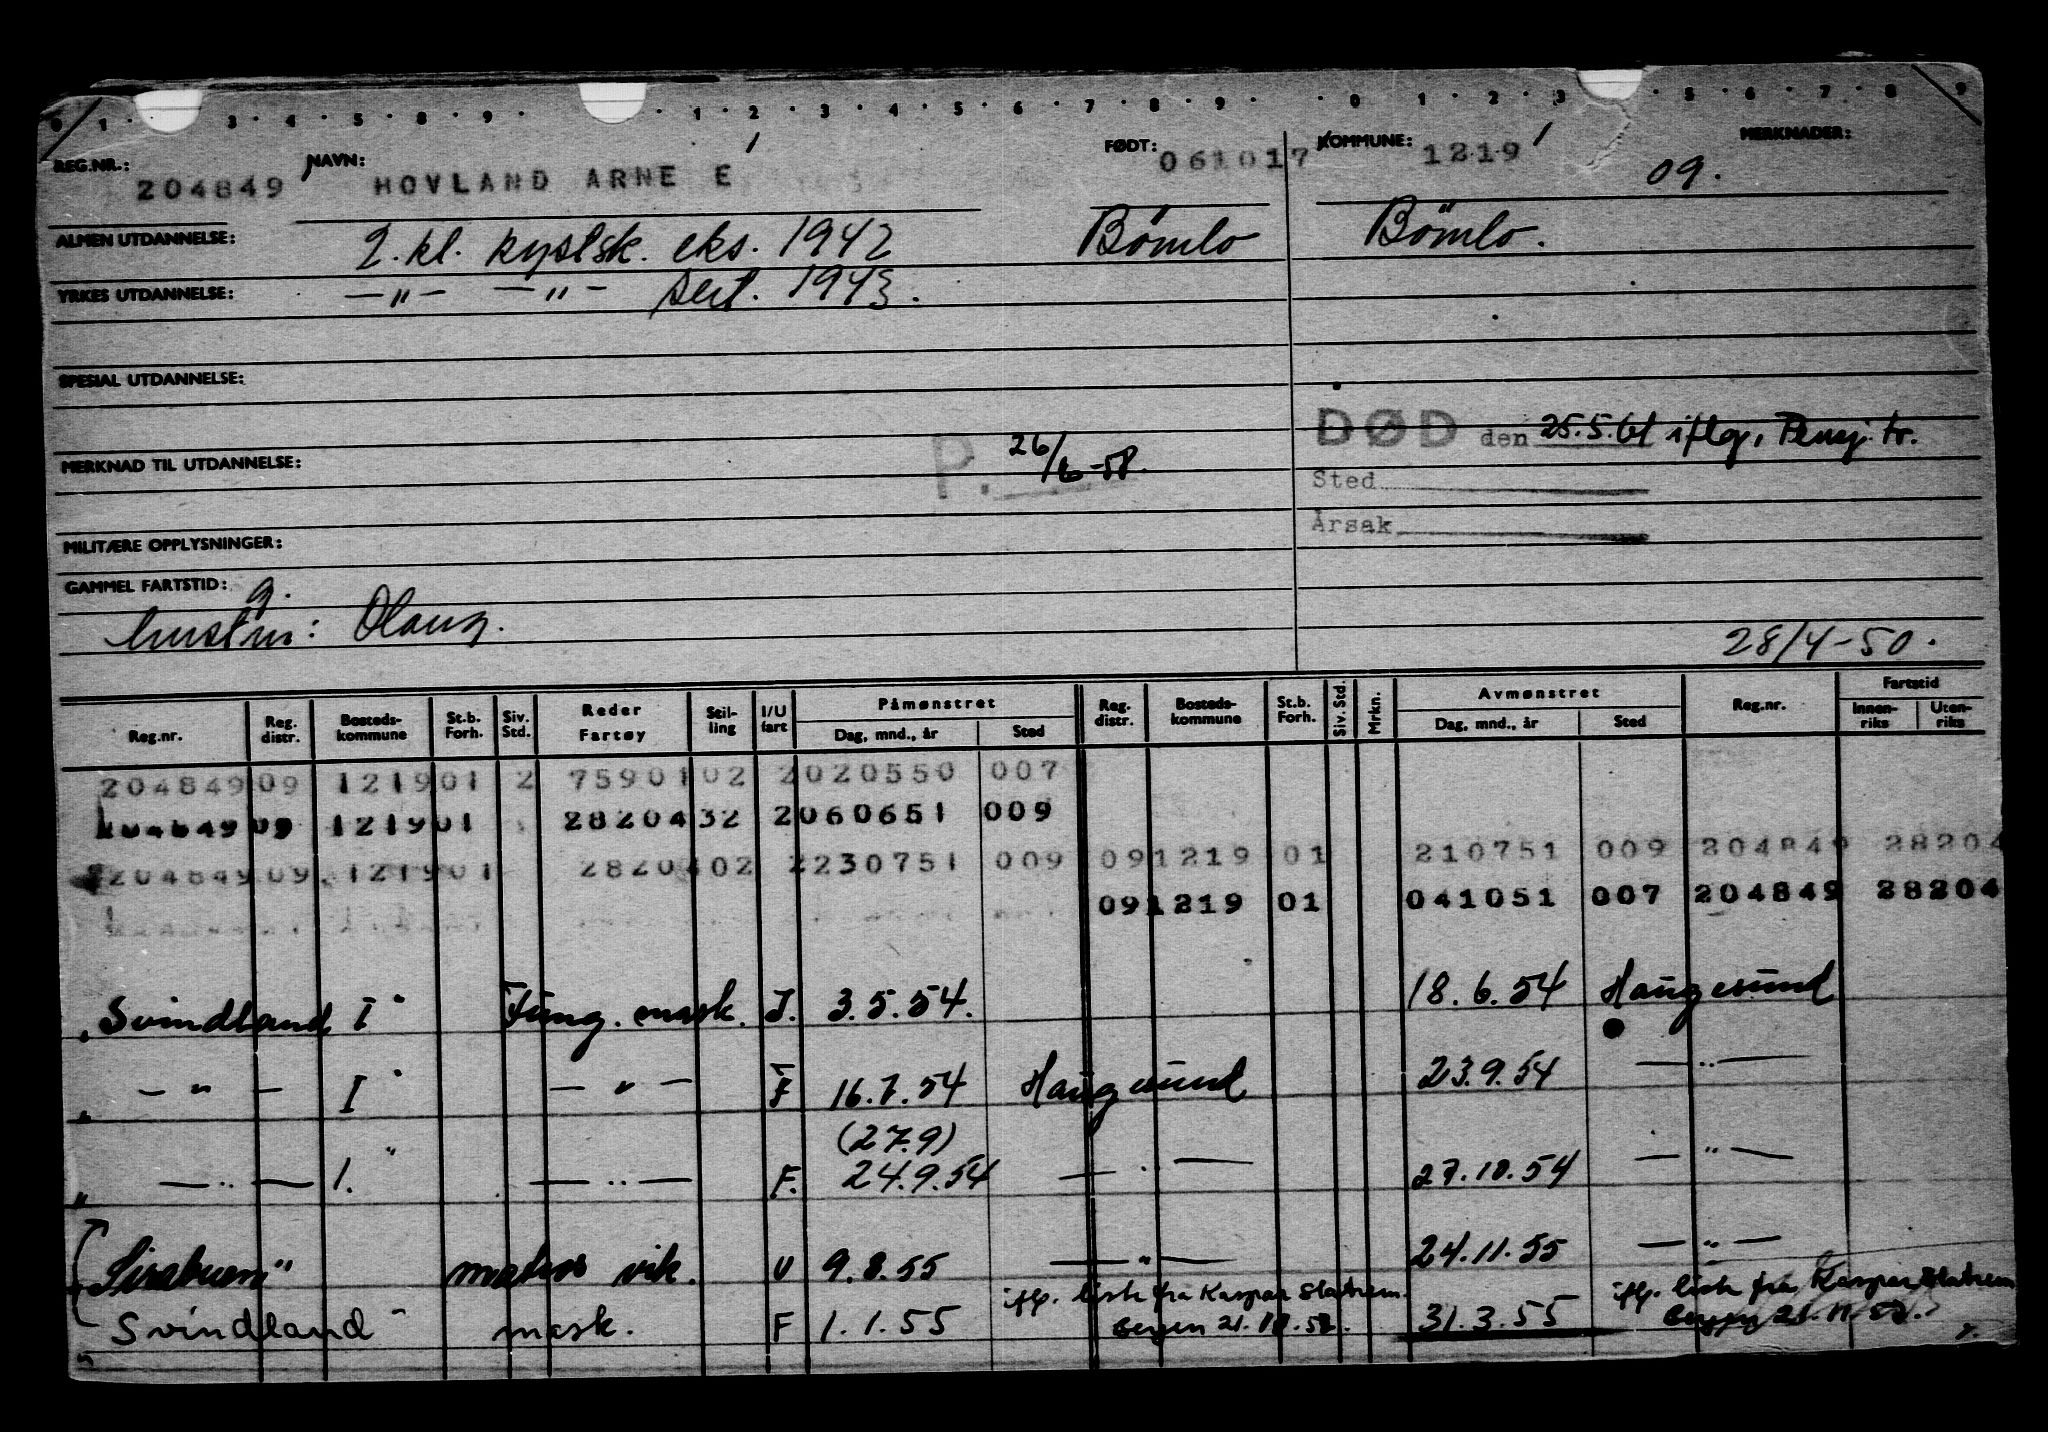 0 1 3 4 5 8 9 1 2 3 4 5 6 7 8 9 0 1 2 3 5 6 7 8 9
REG.NR.: 204849 NAVN: HOVLAND ARNE E FØDT: 061017 KOMMUNE: 1219 MERKNADER: 09.
ALMEN UTDANNELSE: 2.kl. kystsk. eks. 1942 Bömlo Bömlo.
YRKES UTDANNELSE: —„— —„— sert. 1943.
SPESIAL UTDANNELSE:
DØD den 25.5.61 iflg. Pensj. tr.
MERKNAD TIL UTDANNELSE: P. 26/6-58.
Sted
Årsak
MILITÆRE OPPLYSNINGER:
GAMMEL FARTSTID: g.
hustru: Olaug. 28/4-50.
Reg.nr. Reg. distr. Bosteds-kommune St.b. Forh. Siv. Std. Reder Fartøy Stil-ling I/U fart Påmønstret Dag, mnd., år Sted Reg. distr. Bosteds-kommune St.b. Forh. Siv. Std. Mrkn. Avmønstret Dag, mnd., år Sted Reg.nr. Fartstid Innen-riks Uten-riks
204849 09 1219 01 2 75901 02 2 020550 007
204849 09 1219 01 28204 32 2 060651 009
204849 09 1219 01 28204 02 2 230751 009 09 1219 01 210751 009 204849 28204
09 1219 01 041051 007 204849 28204
„Svindland I" Fung. mask. I. 3.5.54. 18.6.54 Haugesund
„ — „ — I" — „ — F 16.7.54 Haugesund 23.9.54 — „ —
(27.9)
„ — „ — I." — „ — F. 24.9.54 — „ — 27.10.54 — „ —
matros vik. U 9.8.55 — „ — 24.11.55 — „ —
„Svindland" mask. F 1.1.55 iflg. liste fra Kaspar 31.3.55 iflg. liste fra Kaspar
Bergen